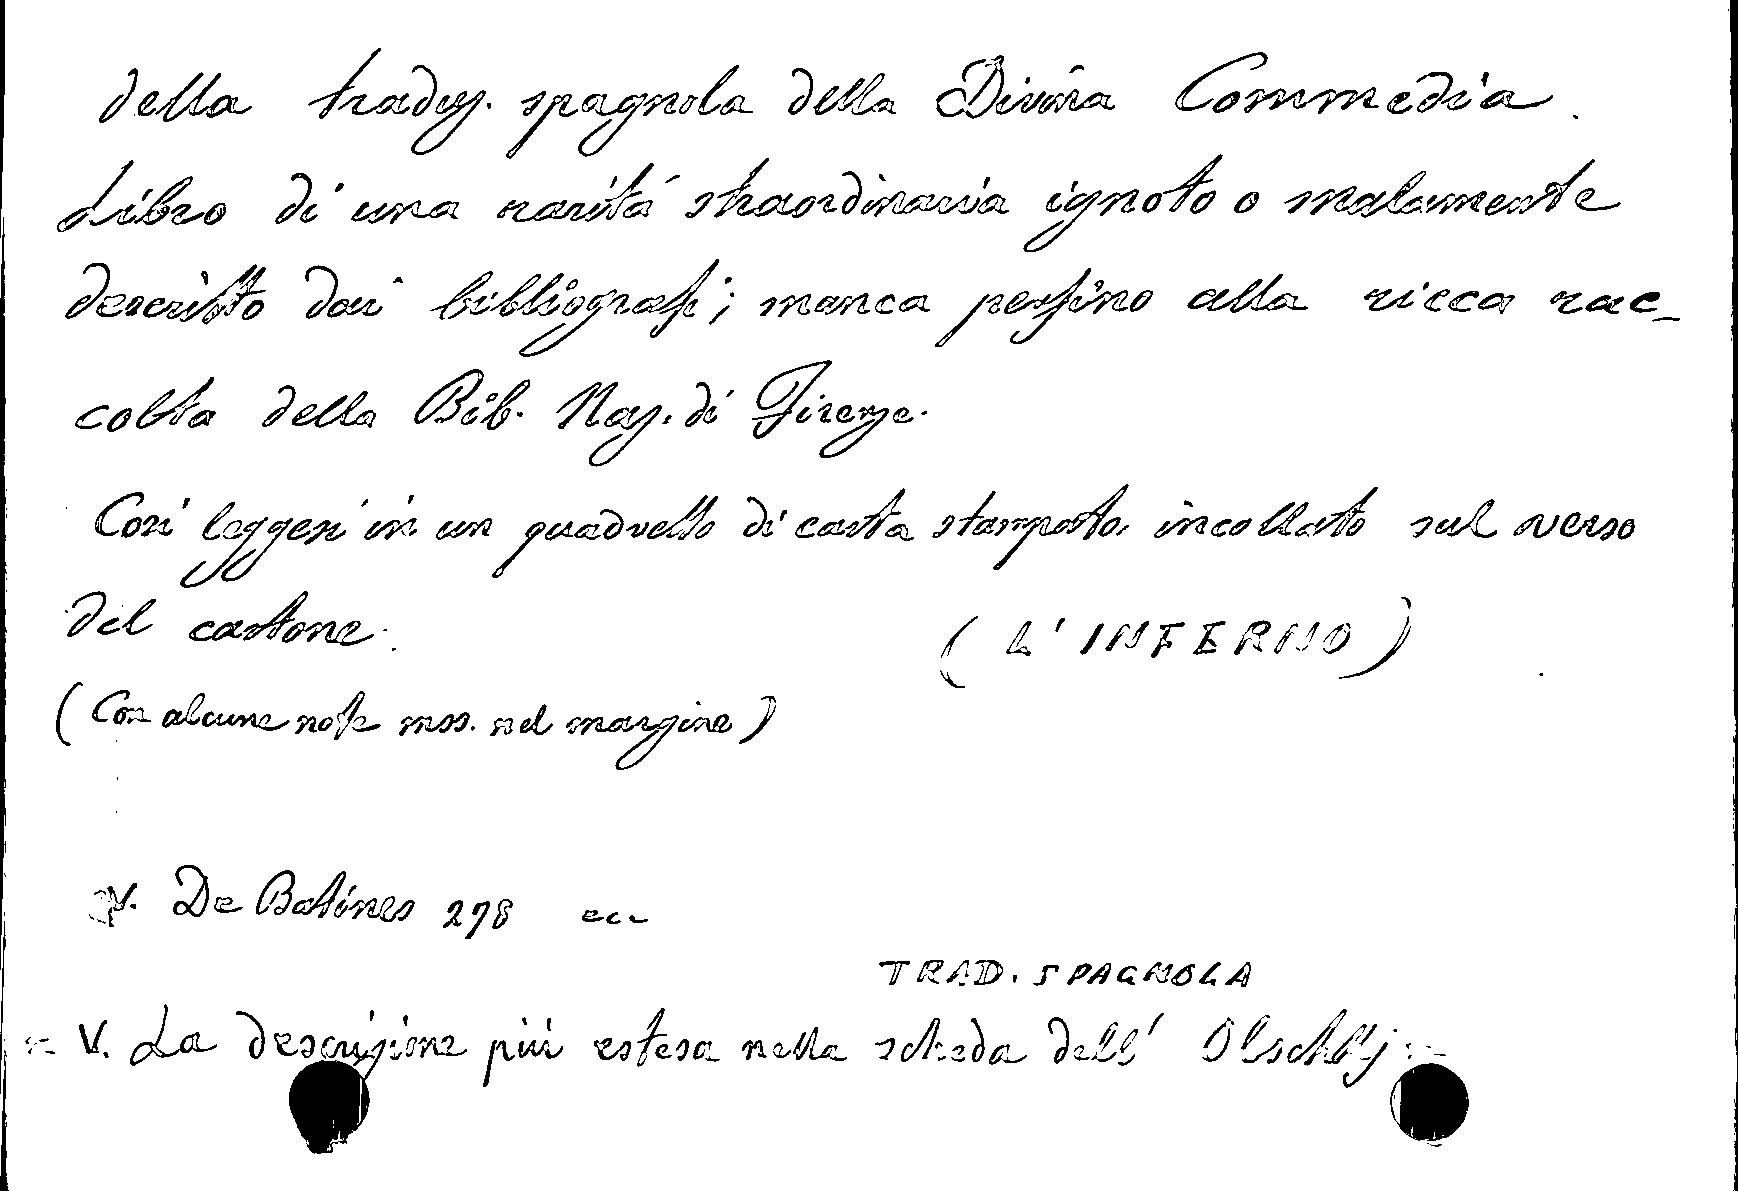 della traduz. spagnola della Divina Commedia.
Libro di una rarità straordinaria ignoto o malamente
descritto dai bibliografi; manca perfino alla ricca rac-
colta della Bib. Naz. di Firenze.
Così leggesi in un quadretto di carta stampato, incollato sul verso
del cartone.
( L'INFERNO )
( Con alcune note mss. nel margine )
V. De Batines 278 ecc
TRAD. SPAGNOLA
V. La descrizione più estesa nella scheda dell' Olschkj